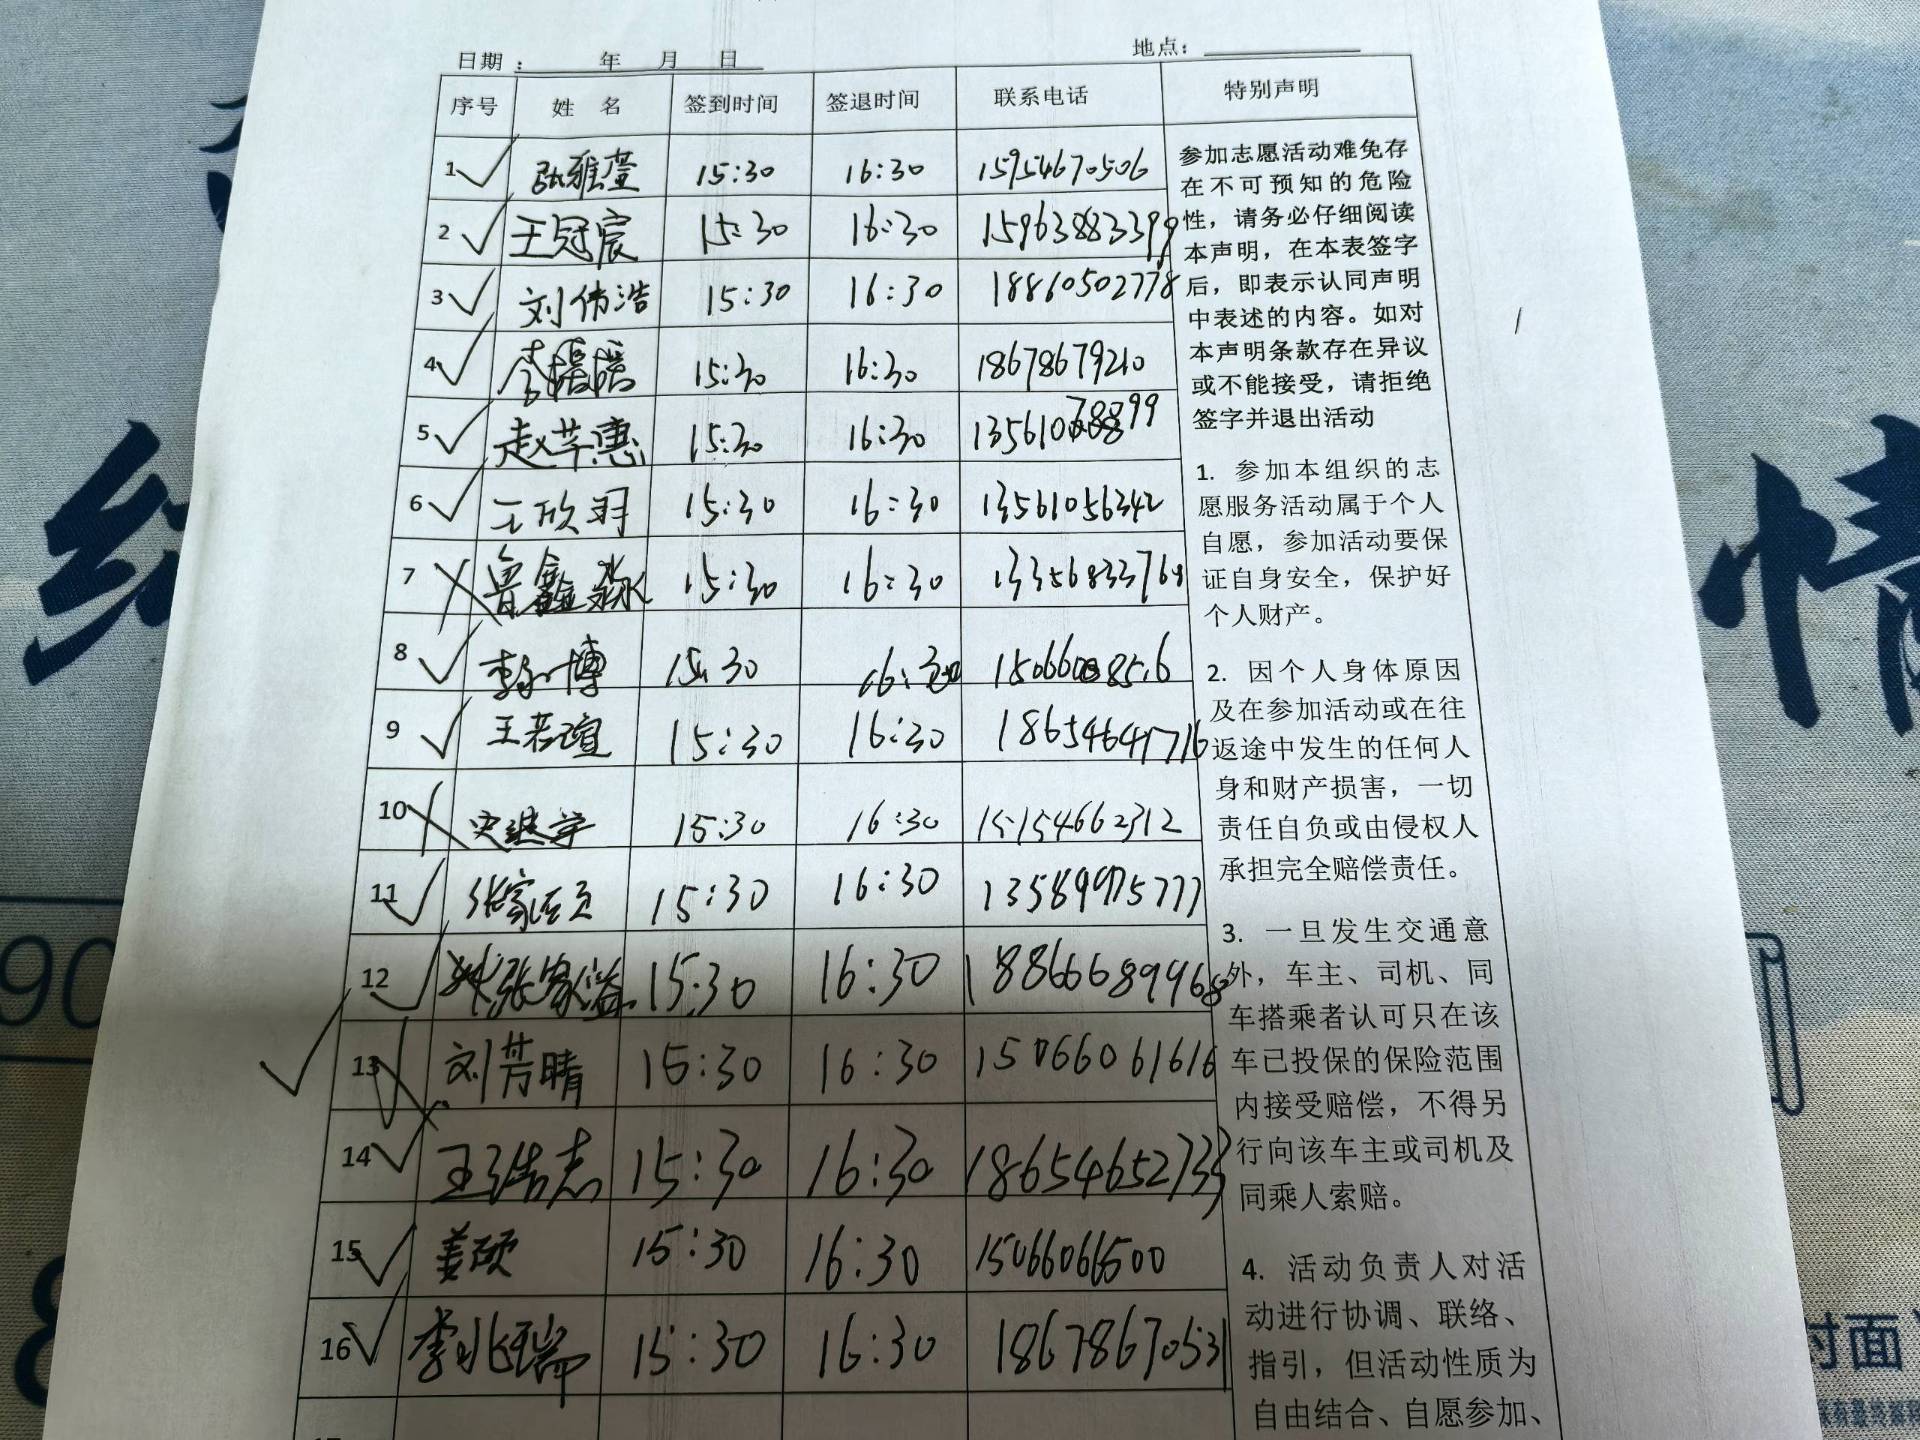 日期： 年 月 日 地点：
序号 姓 名 签到时间 签退时间 联系电话 特别声明
1 张雅萱 15:30 16:30 15954670506
2 王冠宸 15:30 16:30 15963883399
3 刘伟浩 15:30 16:30 18860502778
4 15:30 16:30 18678679210
5 赵芊惠 15:30 16:30
6 王欣羽 15:30 16:30 13561056342
7 鲁鑫淼 15:30 16:30 13356833768
8 15:30 16:30
9 王若瑄 15:30 16:30 18654641716
10 15:30 16:30 15154662312
11 15:30 16:30 13589975777
12 张家溢 15:30 16:30 18866689968
13 刘芳晴 15:30 16:30 15066061616
14 王浩志 15:30 16:30 18654652733
15 姜硕 15:30 16:30 15066066500
16 李兆瑞 15:30 16:30 18678670531
参加志愿活动难免存
在不可预知的危险
性，请务必仔细阅读
本声明，在本表签字
后，即表示认同声明
中表述的内容。如对
本声明条款存在异议
或不能接受，请拒绝
签字并退出活动
1. 参加本组织的志
愿服务活动属于个人
自愿，参加活动要保
证自身安全，保护好
个人财产。
2. 因个人身体原因
及在参加活动或在往
返途中发生的任何人
身和财产损害，一切
责任自负或由侵权人
承担完全赔偿责任。
3. 一旦发生交通意
外，车主、司机、同
车搭乘者认可只在该
车已投保的保险范围
内接受赔偿，不得另
行向该车主或司机及
同乘人索赔。
4. 活动负责人对活
动进行协调、联络、
指引，但活动性质为
自由结合、自愿参加、
情
对面
90